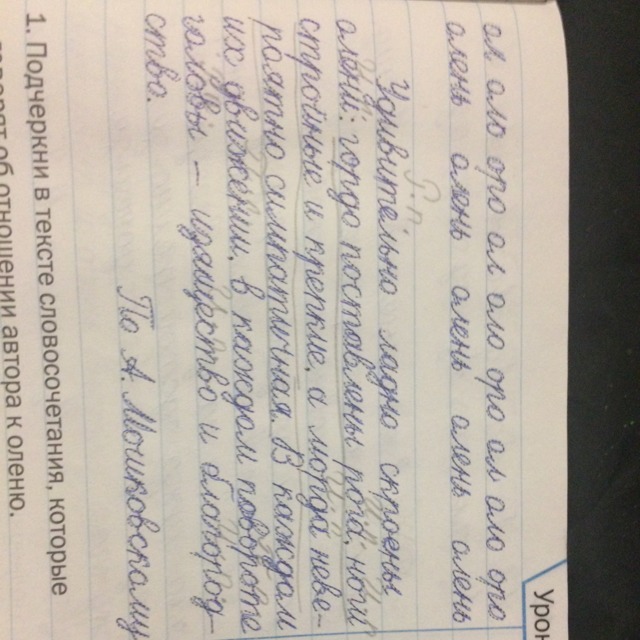 Урок
ол оло оро ол оло оро ол оло оро
олень олень олень олень олень
Удивительно ладно скроены
олени: гордо поставлены рога, ноги
стройные и крепкие, а морда неве-
роятно симпатичная. В каждом
их движении, в каждом повороте
головы – изящество и благород-
ство.
По А. Мошковскому
1. Подчеркни в тексте словосочетания, которые
говорят об отношении автора к оленю.